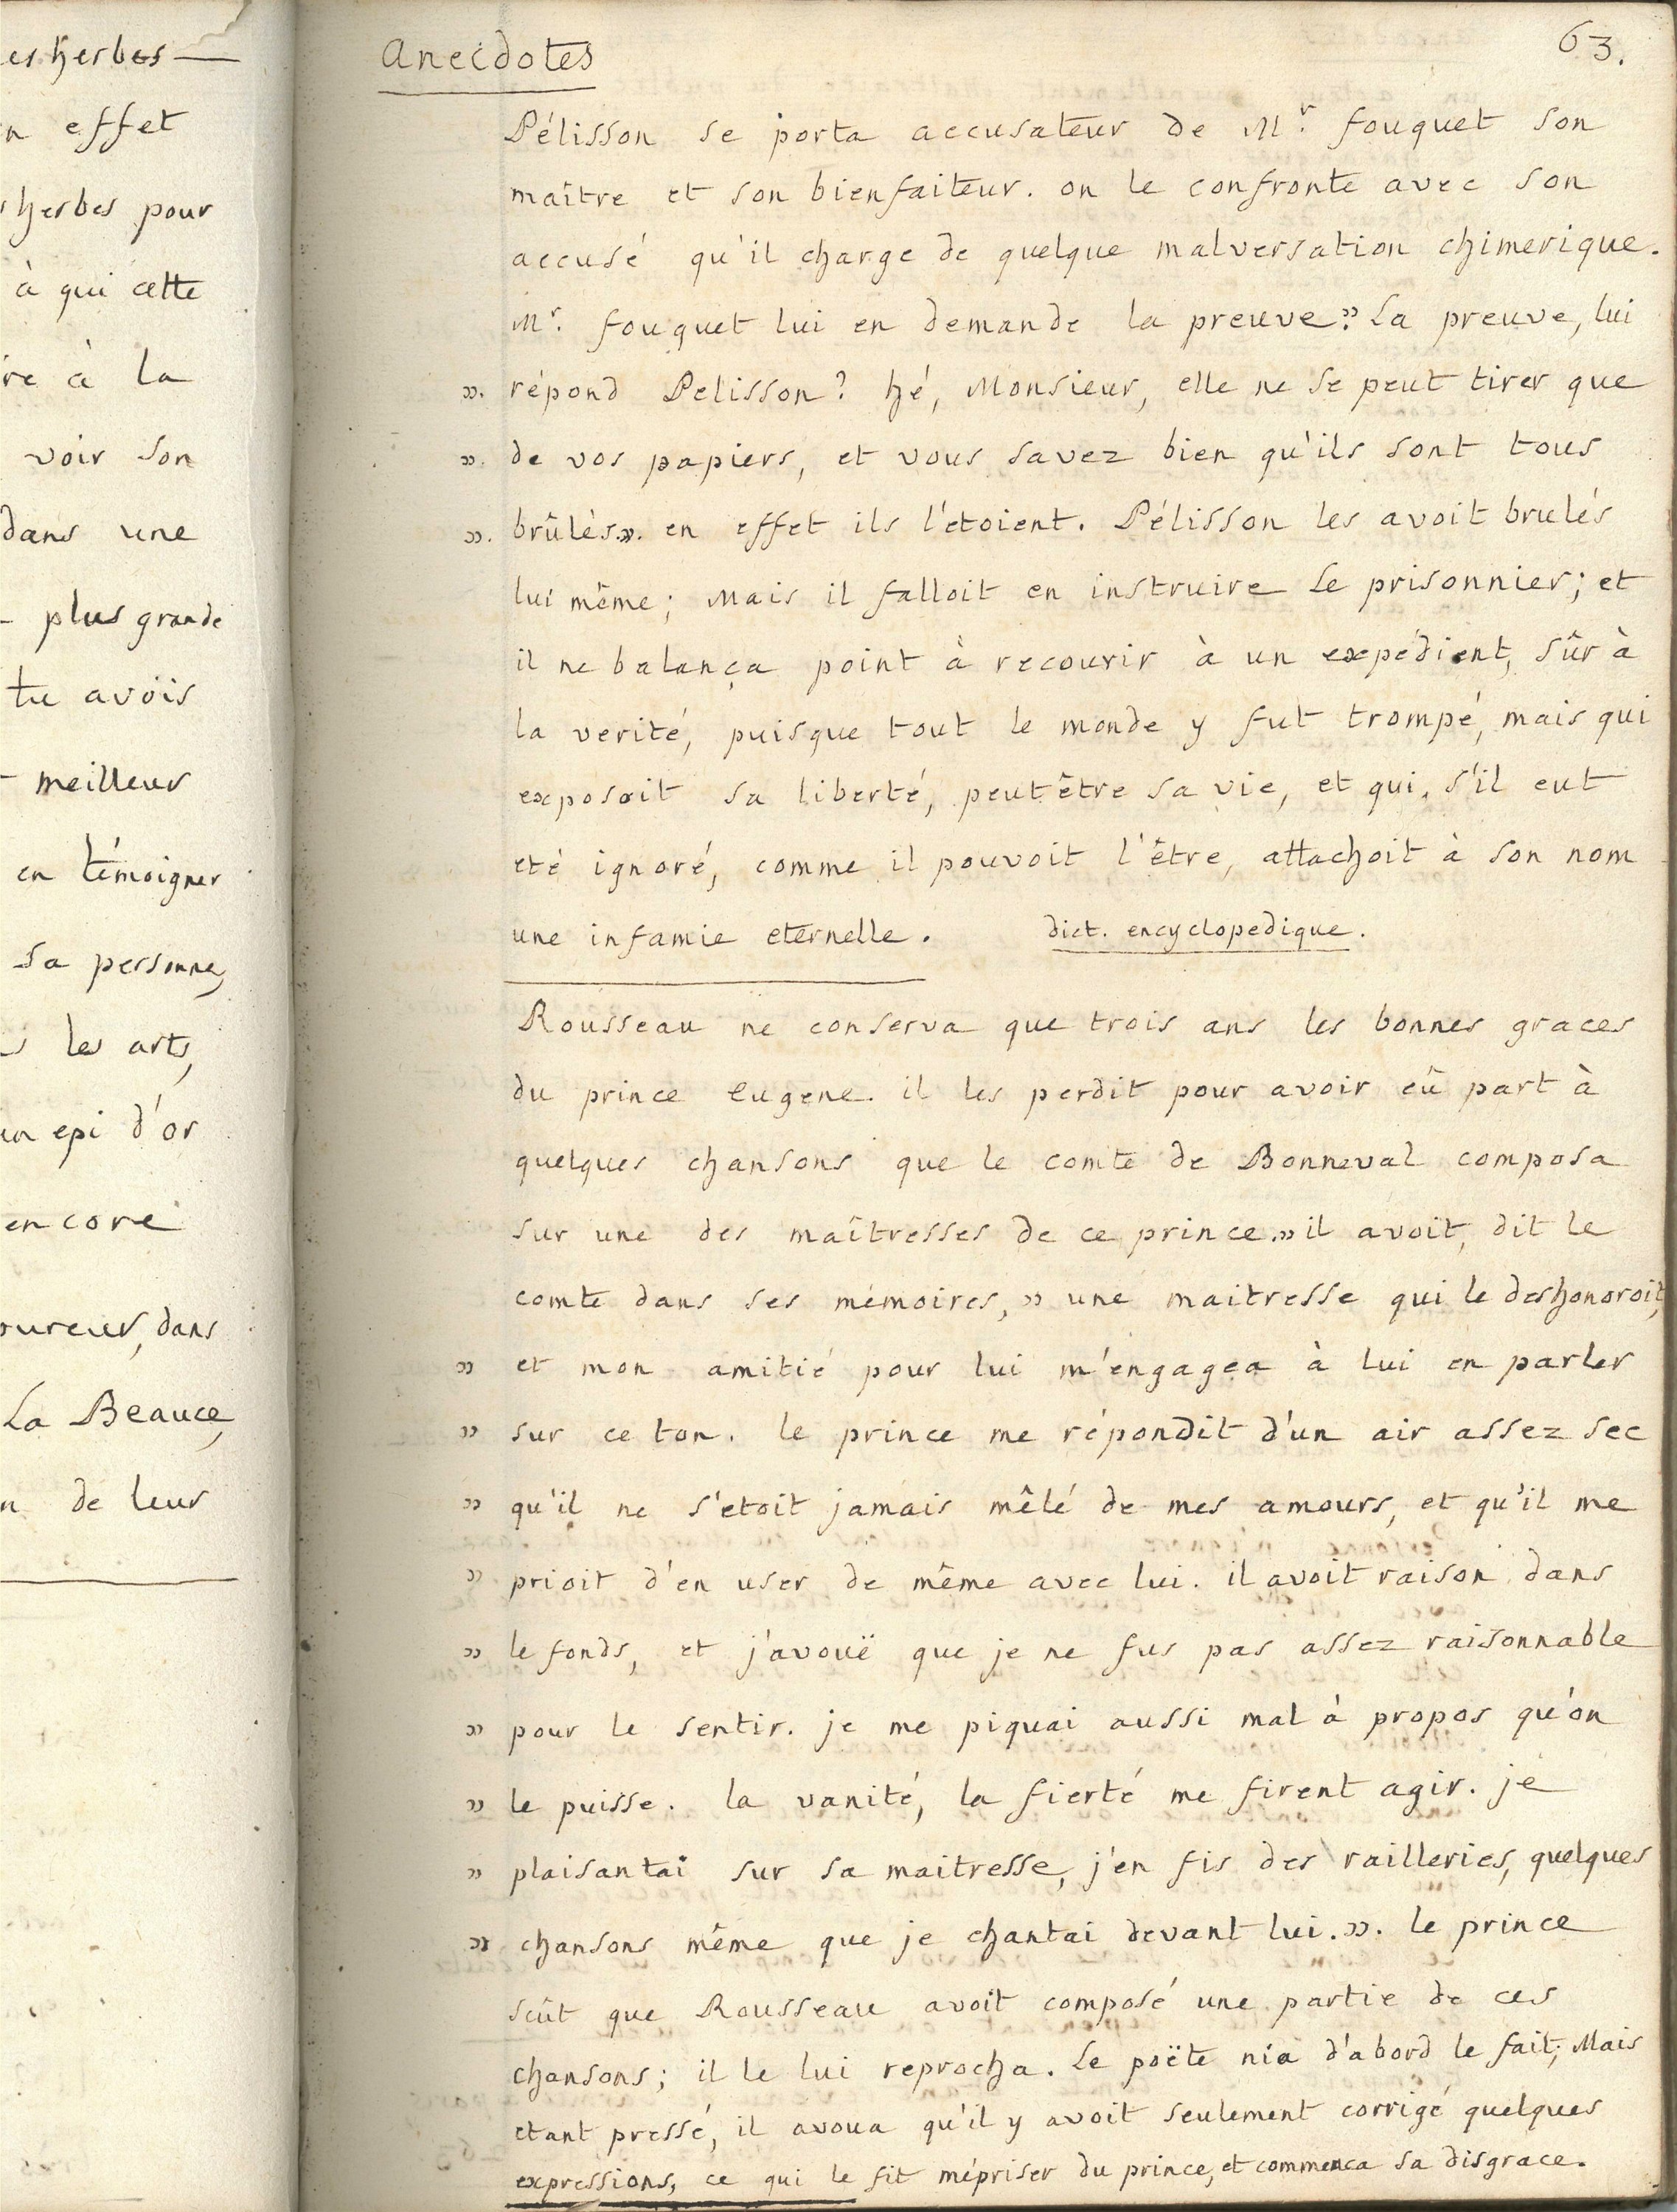 es herbes —
n effet
herbes pour
à qui cette
re à la
voir son
dans une
- plus grande
tu avois
- meilleur
en témoigner
sa personne,
s les arts,
un epi d'or
encore
oureur, dans
La Beauce,
n de leur
Anecdotes
63.
Pélisson se porta accusateur de Mr. fouquet son
maître et son bienfaiteur. on le confronte avec son
accusé qu'il charge de quelque malversation chimerique.
Mr. fouquet lui en demande la preuve: » La preuve, lui
». répond Pelisson? hé, Monsieur, elle ne se peut tirer que
». de vos papiers, et vous savez bien qu'ils sont tous
». brûlés.». en effet ils l'etoient. Pélisson les avoit brulés
lui même; Mais il falloit en instruire Le prisonnier; et
il ne balança point à recourir à un expédient, sûr à
la verité, puisque tout le monde y fut trompé, mais qui
exposoit sa liberté, peutêtre sa vie, et qui, s'il eut
eté ignoré, comme il pouvoit l'être, attachoit à son nom
une infamie eternelle. dict. encyclopedique.
Rousseau ne conserva que trois ans les bonnes graces
du prince Eugene. il les perdit pour avoir eû part à
quelques chansons que le comte de Bonneval composa
sur une des maîtresses de ce prince. » il avoit, dit le
comte dans ses mémoires, » une maitresse qui le deshonoroit,
» et mon amitié pour lui m'engagea à lui en parler
» sur ce ton. le prince me répondit d'un air assez sec
» qu'il ne s'etoit jamais mêlé de mes amours, et qu'il me
» prioit d'en user de même avec lui. il avoit raison dans
» le fonds, et j'avouë que je ne fus pas assez raisonnable
» pour le sentir. je me piquai aussi mal à propos qu'on
» le puisse. la vanité, la fierté me firent agir. je
» plaisantai sur sa maitresse, j'en fis des railleries, quelques
» chansons même que je chantai devant lui.». le prince
scût que Rousseau avoit composé une partie de ces
chansons; il le lui reprocha. Le poëte nia d'abord le fait; Mais
etant pressé, il avoua qu'il y avoit seulement corrigé quelques
expressions, ce qui le fit mépriser du prince, et commença sa disgrace.